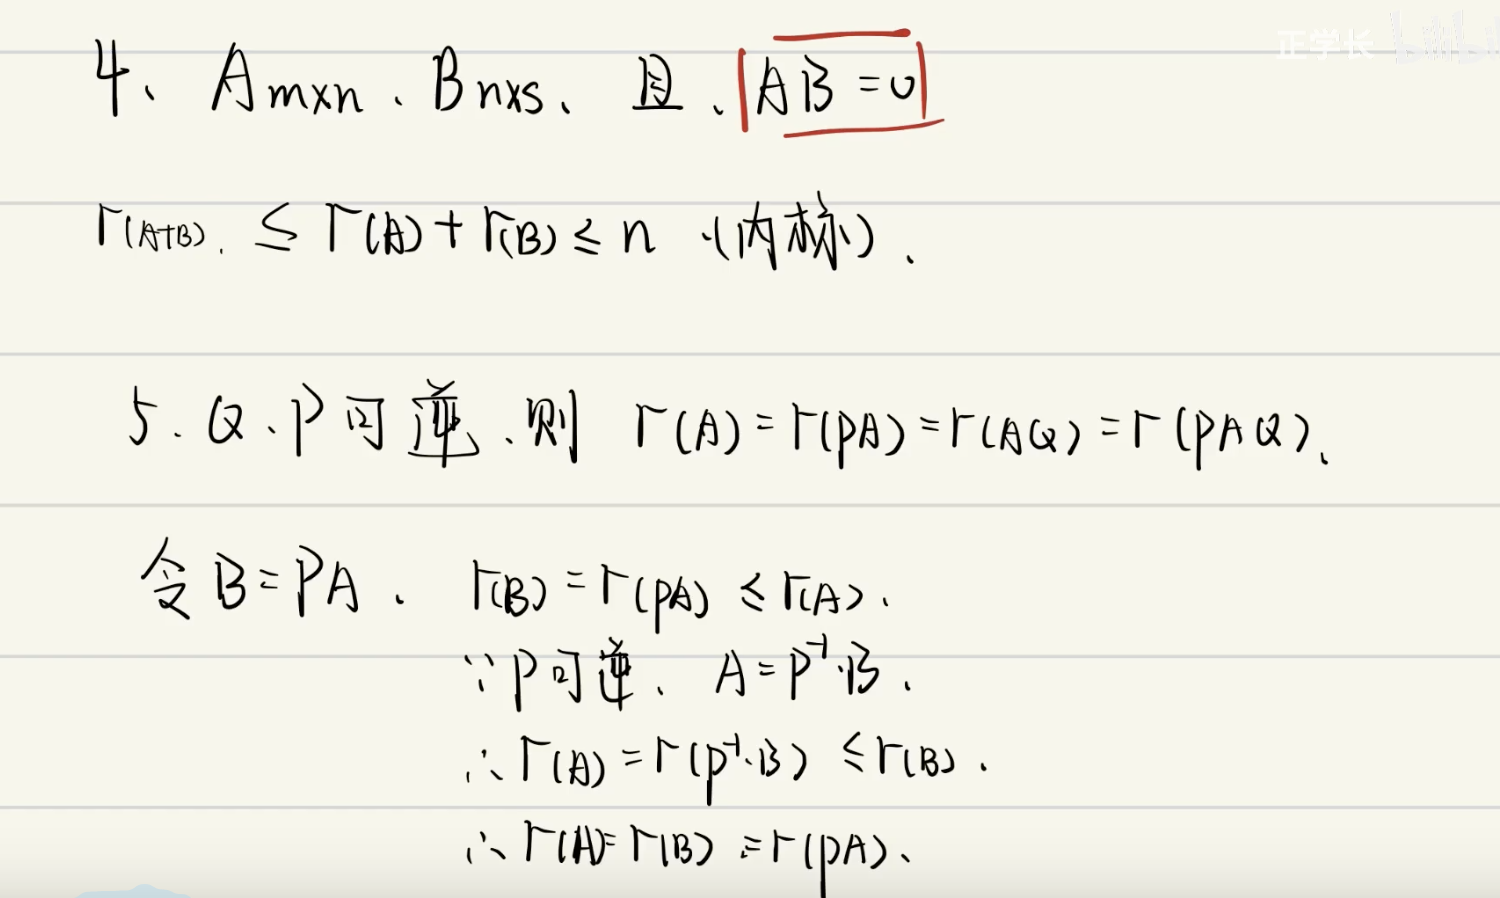 正学长 bilibili
4、Am×n、Bn×s、且、AB=0
r(A+B). ≤ r(A)+r(B) ≤ n (内标)、
5. Q、P可逆、则 r(A)=r(PA)=r(AQ)=r(PAQ)、
令B=PA. r(B)=r(PA)≤r(A).
∵P可逆、A=P⁻¹·B.
∴r(A)=r(P⁻¹·B)≤r(B).
∴r(A)=r(B)=r(PA)、